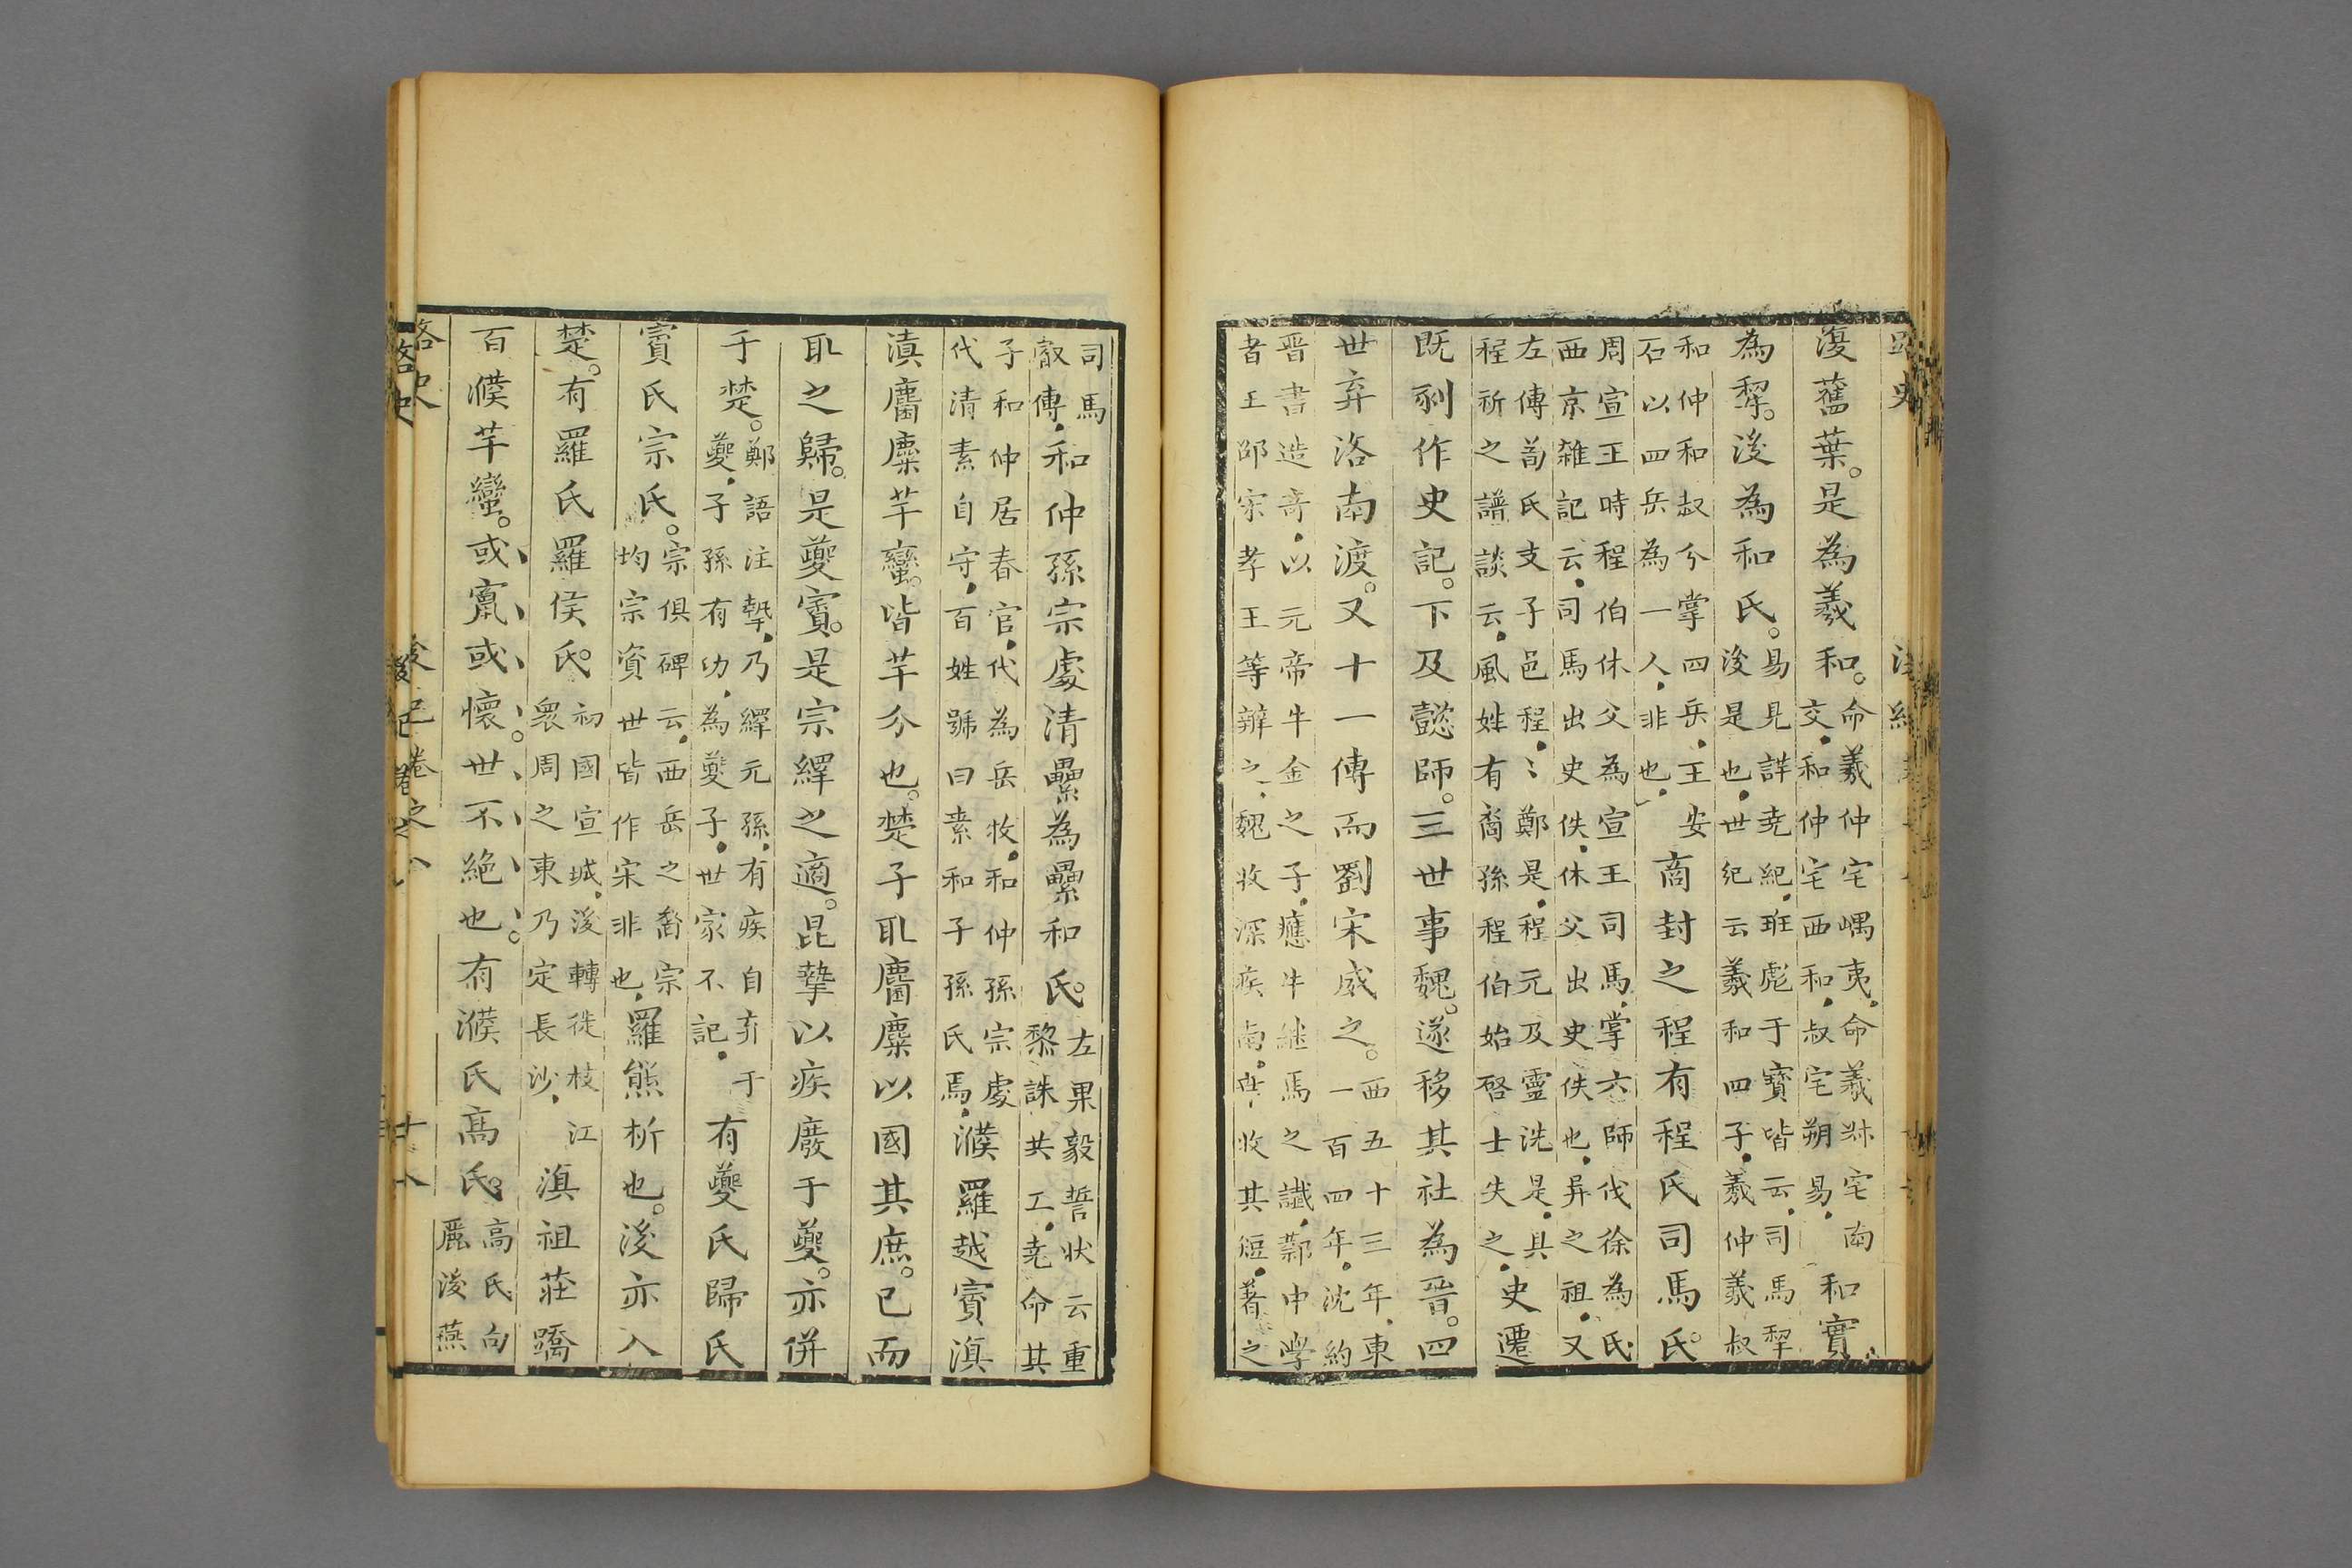 復舊葉。是為羲和。命羲仲宅嵎夷，命羲叔宅南交，和仲宅西和，叔宅朔易，和實
為犂。後為和氏。易見詳堯紀，班彪于寶皆云，司馬犂後是也，世紀云羲和四子，羲仲羲叔
和仲和叔分掌四岳，王安石以四兵為一人，非也，商封之程有程氏司馬氏。
周宣王時程伯休父為宣王司馬，掌六師伐徐為氏西京雜記云，司馬出史佚，休父出史佚也，昇之祖，又
左傳荀氏支子邑程，〻鄭是，程元及靈洗是，具程祈之譜談云，風姓有裔孫程伯始啓士失之，史遷
既剢作史記。下及懿師。三世事魏。遂移其社為晉。四
世弃洛南渡。又十一傳而劉宋威之。西五十三年，東一百四年，沈約
晋書造奇，以元帝牛金之子，應牛繼馬之讖，鄴中學者王邵宋孝王等辨之，魏收深疾南，收其短，著之
司馬叡傳，和仲孫宗處清纍為纍和氏。左果毅誓狀云重黎誅共工，堯命其
子和仲居春官，代為岳牧，和仲孫宗處代清素自守，百姓號曰素和子孫氏焉，濮羅越賨滇
滇麕麇芊蠻。皆芊分也。楚子取麕麇以國其庶。已而
取之歸。是夔賨。是宗繹之適。昆摯以疾廢于夔。亦併
于楚。鄭語注摯，乃繹元孫，有疾自弃于夔，子孫有功，為夔子，世家不記，有夔氏歸氏
賨氏宗氏。宗俱碑云，西岳之裔宗均宗資世皆作宋非也，羅熊析也。後亦入
楚。有羅氏羅侯氏。初國宣城，後轉徙枝江衆周之東乃定長沙，滇祖莊蹻
百濮芊蠻。或賔或懷。世不絶也。有濮氏高氏。高氏向麗後燕
路史
後紀卷之八
十八